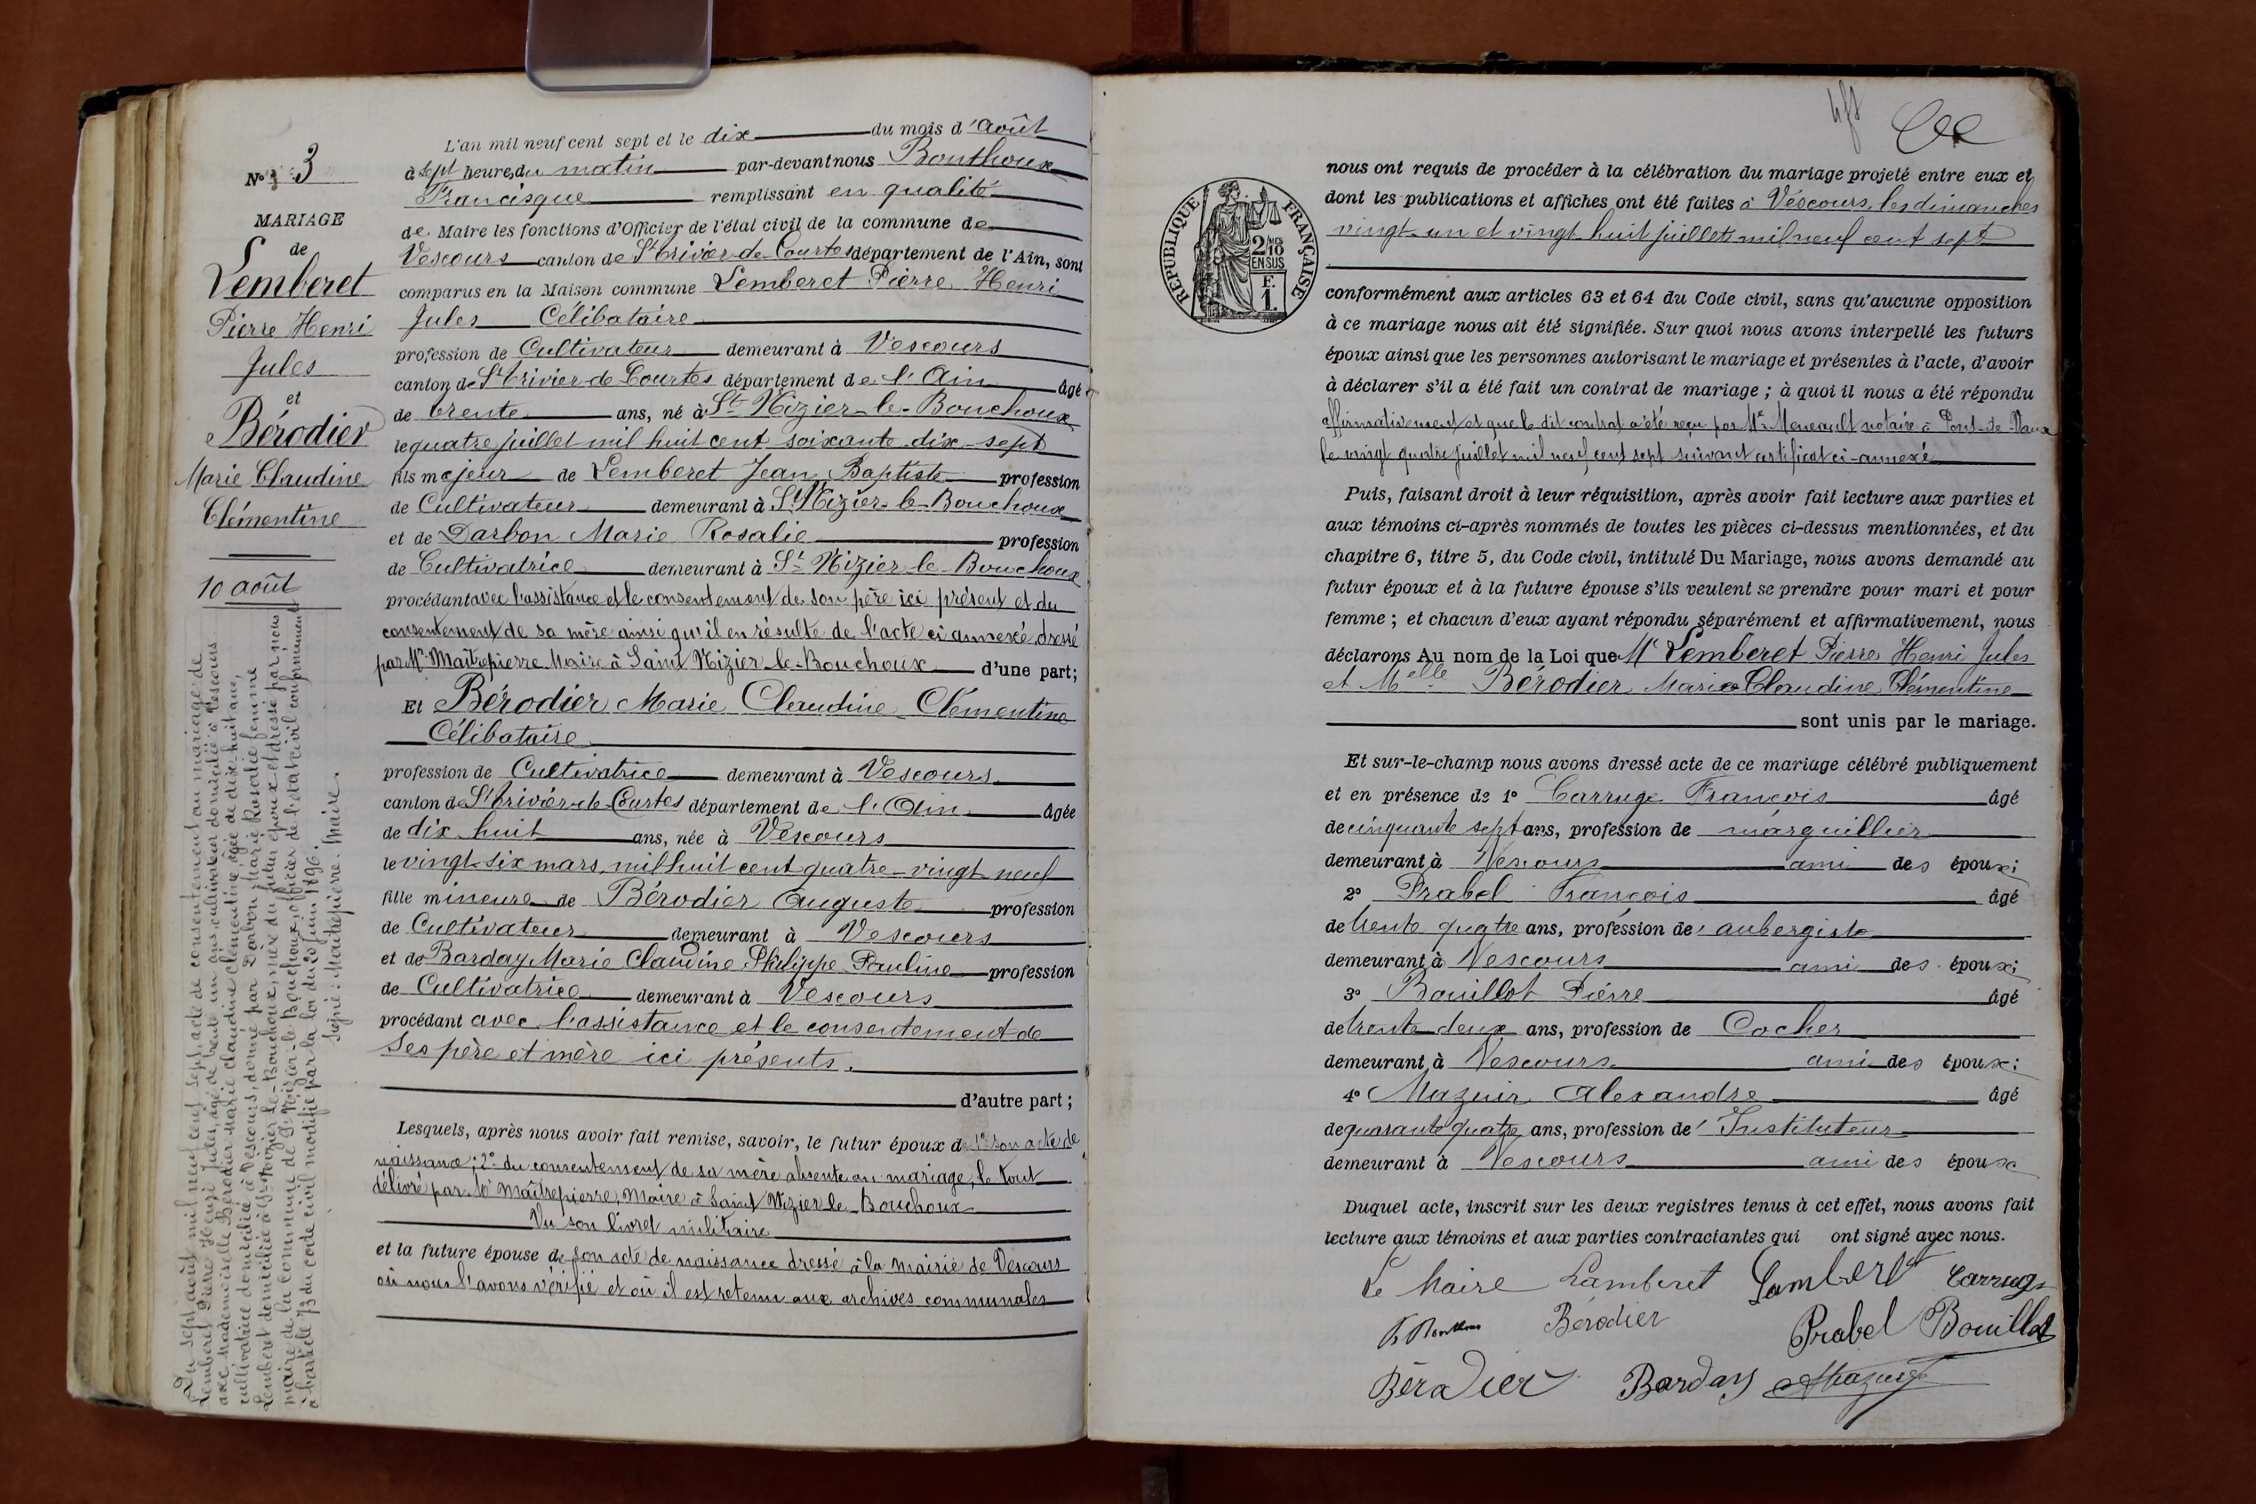 N° 3
MARIAGE
de
Lemberet
Pierre Henri
Jules
et
Bérodier
Marie Claudine
Clémentine
10 août
Du sept août mil neuf cent sept, acte de consentement au mariage de
Lemberet Pierre Henri Jules, âgé de trente un ans, cultivateur domicilié à Vescours
avec Mademoiselle Bérodier Marie Claudine Clémentine âgée de dix-huit ans,
cultivatrice domiciliée à Vescours, donné par Darbon Marie Rosalie femme
Lemberet domiciliée à St Nizier-le-Bouchoux, mère du futur époux et dressé par nous
maire de la commune de St Nizier-le-Bouchoux, officier de l'état civil conformément
à l'article 73 du code civil modifié par la loi du 20 juin 1896.
Signé: Maitrepierre. Maire.
L'an mil neuf cent sept et le dix du mois d'août
à sept heures du matin par-devant nous Bonthoux
Francisque remplissant en qualité
de Maire les fonctions d'Officier de l'état civil de la commune de
Vescours canton de St Trivier-de-Courtes département de l'Ain, sont
comparus en la Maison commune Lemberet Pierre Henri
Jules Célibataire
profession de Cultivateur demeurant à Vescours
canton de St Trivier-de-Courtes département de l'Ain âgé
de trente ans, né à St Nizier-le-Bouchoux
le quatre juillet mil huit cent soixante dix-sept
fils majeur de Lemberet Jean Baptiste profession
de Cultivateur demeurant à St Nizier-le-Bouchoux
et de Darbon Marie Rosalie profession
de Cultivatrice demeurant à St Nizier-le-Bouchoux
procédant avec l'assistance et le consentement de son père ici présent et du
consentement de sa mère ainsi qu'il en résulte de l'acte ci annexé dressé
par Mr Maitrepierre Maire à Saint Nizier-le-Bouchoux d'une part;
Et Bérodier Marie Claudine Clémentine
Célibataire
profession de Cultivatrice demeurant à Vescours
canton de St Trivier-de-Courtes département de l'Ain âgée
de dix huit ans, née à Vescours
le vingt-six mars mil huit cent quatre-vingt neuf
fille mineure de Bérodier Auguste profession
de Cultivateur demeurant à Vescours
et de Barday Marie Claudine Philippe Pauline profession
de Cultivatrice demeurant à Vescours
procédant avec l'assistance et le consentement de
ses père et mère ici présents.
d'autre part;
Lesquels, après nous avoir fait remise, savoir, le futur époux de 1° son acte de
naissance; 2° du consentement de sa mère absente au mariage, le tout
délivré par Mr Maîtrepierre, Maire à Saint Nizier-le-Bouchoux
Vu son livret militaire
et la future épouse de son acte de naissance dressé à la mairie de Vescours
où nous l'avons vérifié et où il est retenu aux archives communales
RÉPUBLIQUE FRANÇAISE
2/10
EN SUS
F.
1
nous ont requis de procéder à la célébration du mariage projeté entre eux et
dont les publications et affiches ont été faites à Vescours, les dimanches
vingt-un et vingt-huit juillet mil neuf cent sept
conformément aux articles 63 et 64 du Code civil, sans qu'aucune opposition
à ce mariage nous ait été signifiée. Sur quoi nous avons interpellé les futurs
époux ainsi que les personnes autorisant le mariage et présentes à l'acte, d'avoir
à déclarer s'il a été fait un contrat de mariage; à quoi il nous a été répondu
affirmativement et que le dit contrat a été reçu par Me Meneault notaire à Pont-de-Vaux
le vingt quatre juillet mil neuf cent sept suivant certificat ci-annexé
Puis, faisant droit à leur réquisition, après avoir fait lecture aux parties et
aux témoins ci-après nommés de toutes les pièces ci-dessus mentionnées, et du
chapitre 6, titre 5, du Code civil, intitulé Du Mariage, nous avons demandé au
futur époux et à la future épouse s'ils veulent se prendre pour mari et pour
femme; et chacun d'eux ayant répondu séparément et affirmativement, nous
déclarons Au nom de la Loi que Mr Lemberet Pierre Henri Jules
et Melle Bérodier Marie Claudine Clémentine
sont unis par le mariage.
Et sur-le-champ nous avons dressé acte de ce mariage célébré publiquement
et en présence de 1° Carruge François âgé
de cinquante sept ans, profession de marguillier
demeurant à Vescours ami des époux;
2° Prabel François âgé
de trente quatre ans, profession de aubergiste
demeurant à Vescours ami des époux;
3° Bouillot Pierre âgé
de trente-deux ans, profession de Cocher
demeurant à Vescours ami des époux;
4° Mazuir Alexandre âgé
de quarante quatre ans, profession de Instituteur
demeurant à Vescours ami des époux
Duquel acte, inscrit sur les deux registres tenus à cet effet, nous avons fait
lecture aux témoins et aux parties contractantes qui ont signé avec nous.
Le Maire Lamberet Lambert Carruge
Bérodier Prabel Bouillot
Béradier Barday Mazuir